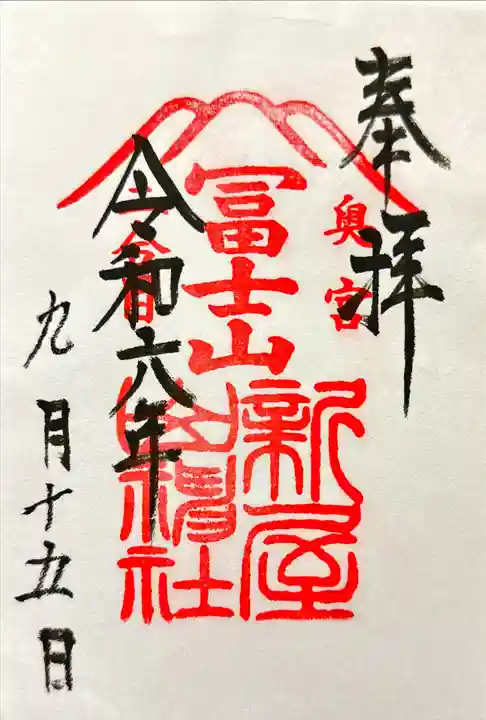 奉拝
奥宮
冨士山
新屋
山神社
二合目
令和六年
九月十五日